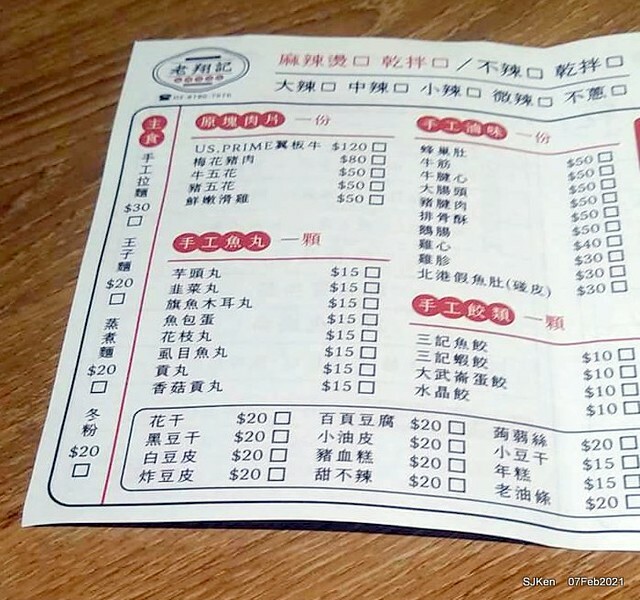 老翔記
麻辣燙□ 乾拌□/不辣□ 乾拌□
大辣□ 中辣□ 小辣□ 微辣□ 不蔥□
主食
手工拉麵 $30 □
王子麵 $20 □
蒸煮麵 $20 □
冬粉 $20 □
原塊肉片 一份
US.PRIME翼板牛 $120 □
梅花豬肉 $80 □
牛五花 $50 □
豬五花 $50 □
鮮嫩滑雞 $50 □
手工魚丸 一顆
芋頭丸 $15 □
韭菜丸 $15 □
旗魚木耳丸 $15 □
魚包蛋 $15 □
花枝丸 $15 □
虱目魚丸 $15 □
貢丸 $15 □
香菇貢丸 $15 □
手工滷味 一份
蜂巢肚 $50 □
牛筋 $50 □
牛腱心 $50 □
大腸頭 $50 □
豬腱肉 $50 □
排骨酥 $50 □
鵝腸 $40 □
雞心 $30 □
雞胗 $30 □
北港假魚肚(碰皮) $30 □
手工餃類 一顆
三記魚餃 $10 □
三記蝦餃 $10 □
大武崙蛋餃 $10 □
水晶餃 $10 □
花干 $20 □ 百頁豆腐 $20 □ 蒟蒻絲 $20 □
黑豆干 $20 □ 小油皮 $20 □ 小豆干 $15 □
白豆皮 $20 □ 豬血糕 $20 □ 年糕 $15 □
炸豆皮 $20 □ 甜不辣 $20 □ 老油條 $20 □
SJKen 07Feb2021